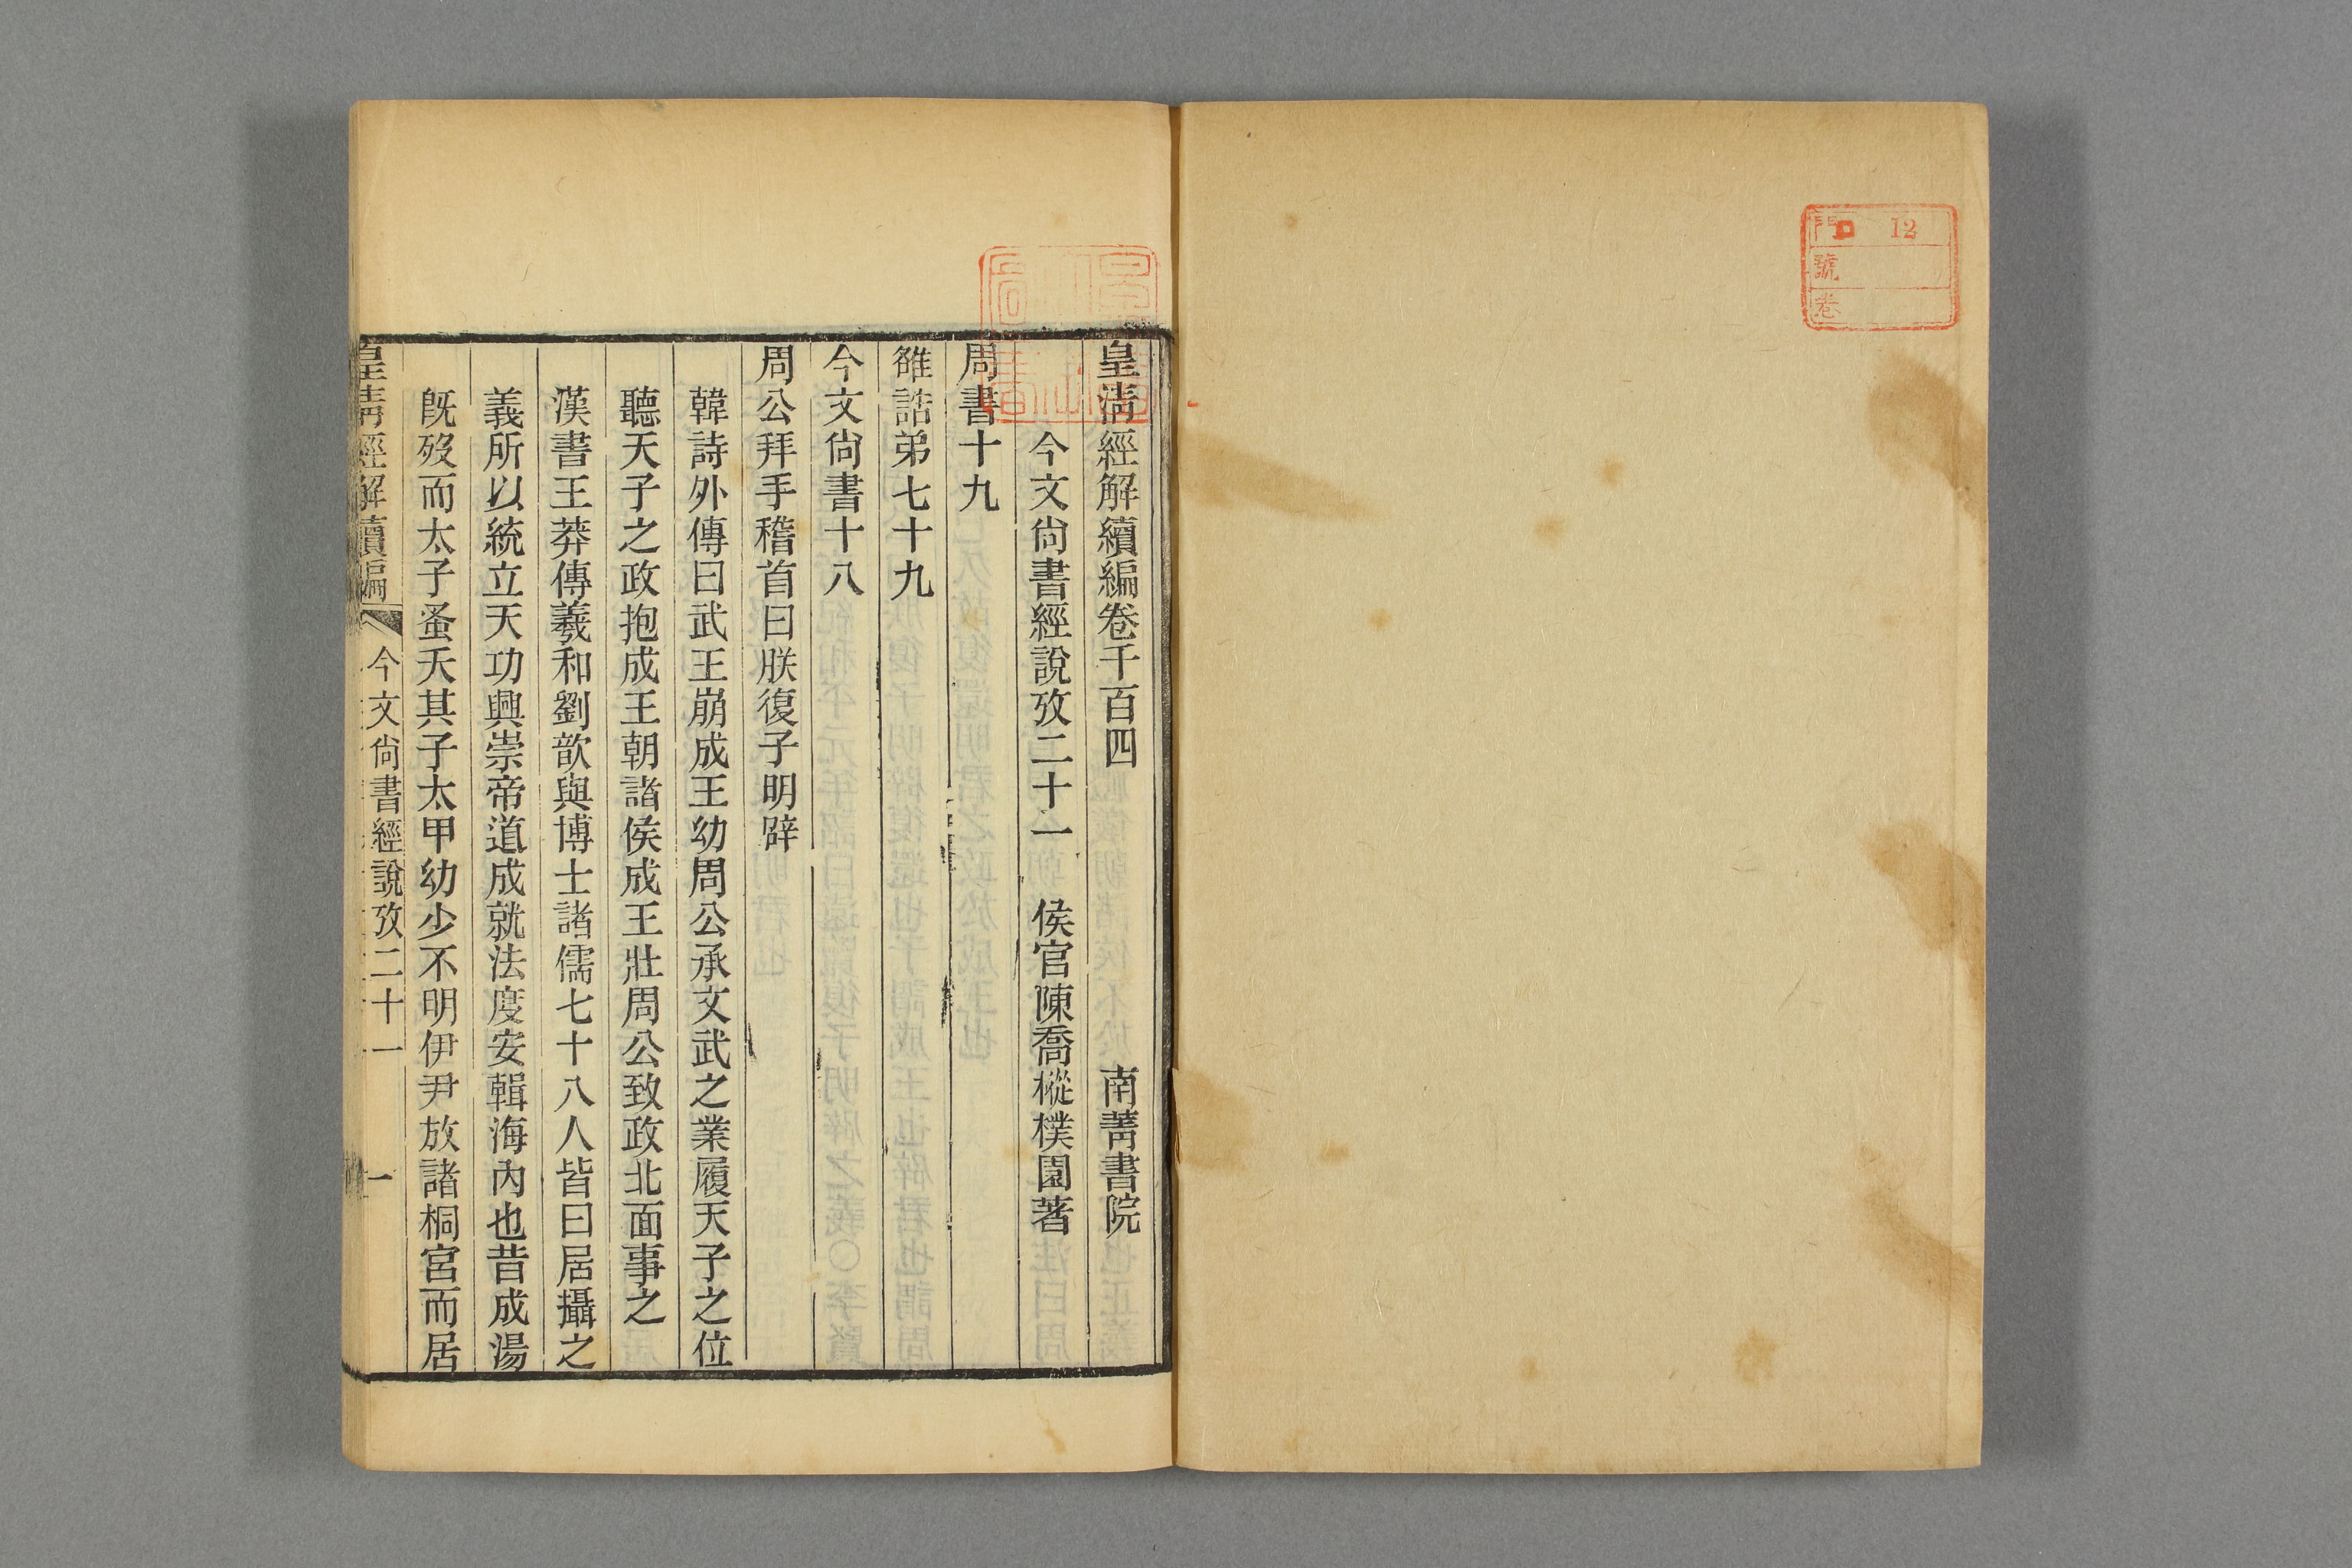 門 D 12
號
卷
皇淸經解續編卷千百四 南菁書院
今文尙書經說攷二十一 侯官陳喬樅樸園著
周書十九
雒誥弟七十九
今文尙書十八
周公拜手稽首曰朕復子明辟
韓詩外傳曰武王崩成王幼周公承文武之業履天子之位
聽天子之政抱成王朝諸侯成王壯周公致政北面事之
漢書王莽傳羲和劉歆與博士諸儒七十八人皆曰居攝之
義所以統立天功興崇帝道成就法度安輯海內也昔成湯
旣歿而太子蚤夭其子太甲幼少不明伊尹放諸桐宮而居
皇淸經解續編 今文尙書經說攷二十一 一